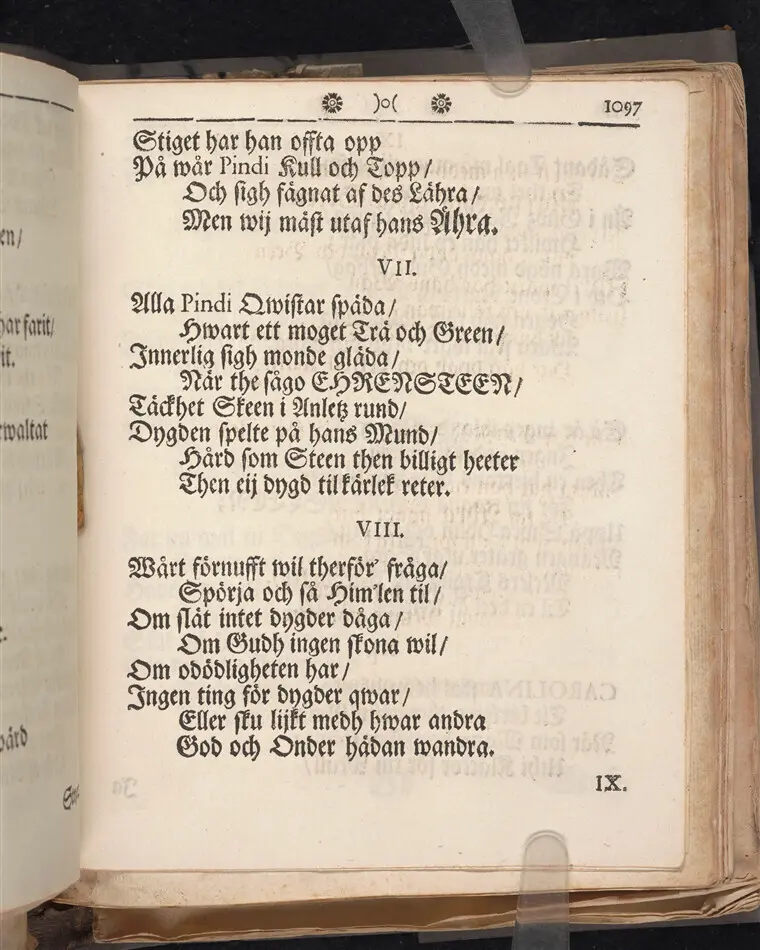 en/
har farit/
it.
rwaltat
)o(
1097
Stiget har han offta opp
På wår Pindi Kull och Topp/
Och sigh fägnat af des Lähra/
Men wij mäst utaf hans Ähra.
VII.
Alla Pindi Qwistar späda/
Hwart ett moget Trä och Green/
Innerlig sigh monde gläda/
När the sågo EHRENSTEEN/
Täckhet Skeen i Anletz rund/
Dygden spelte på hans Mund/
Hård som Steen then billigt heeter
Then eij dygd til kärlek reter.
VIII.
Wårt förnufft wil therför' fråga/
Spörja och så Him'len til/
Om slät intet dygder dåga/
Om Gudh ingen skona wil/
Om odödligheten har/
Ingen ting för dygder qwar/
Eller sku lijkt medh hwar andra
God och Onder hädan wandra.
IX.